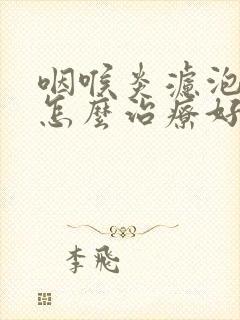 咽喉炎濾泡
怎麼治療好
李飛